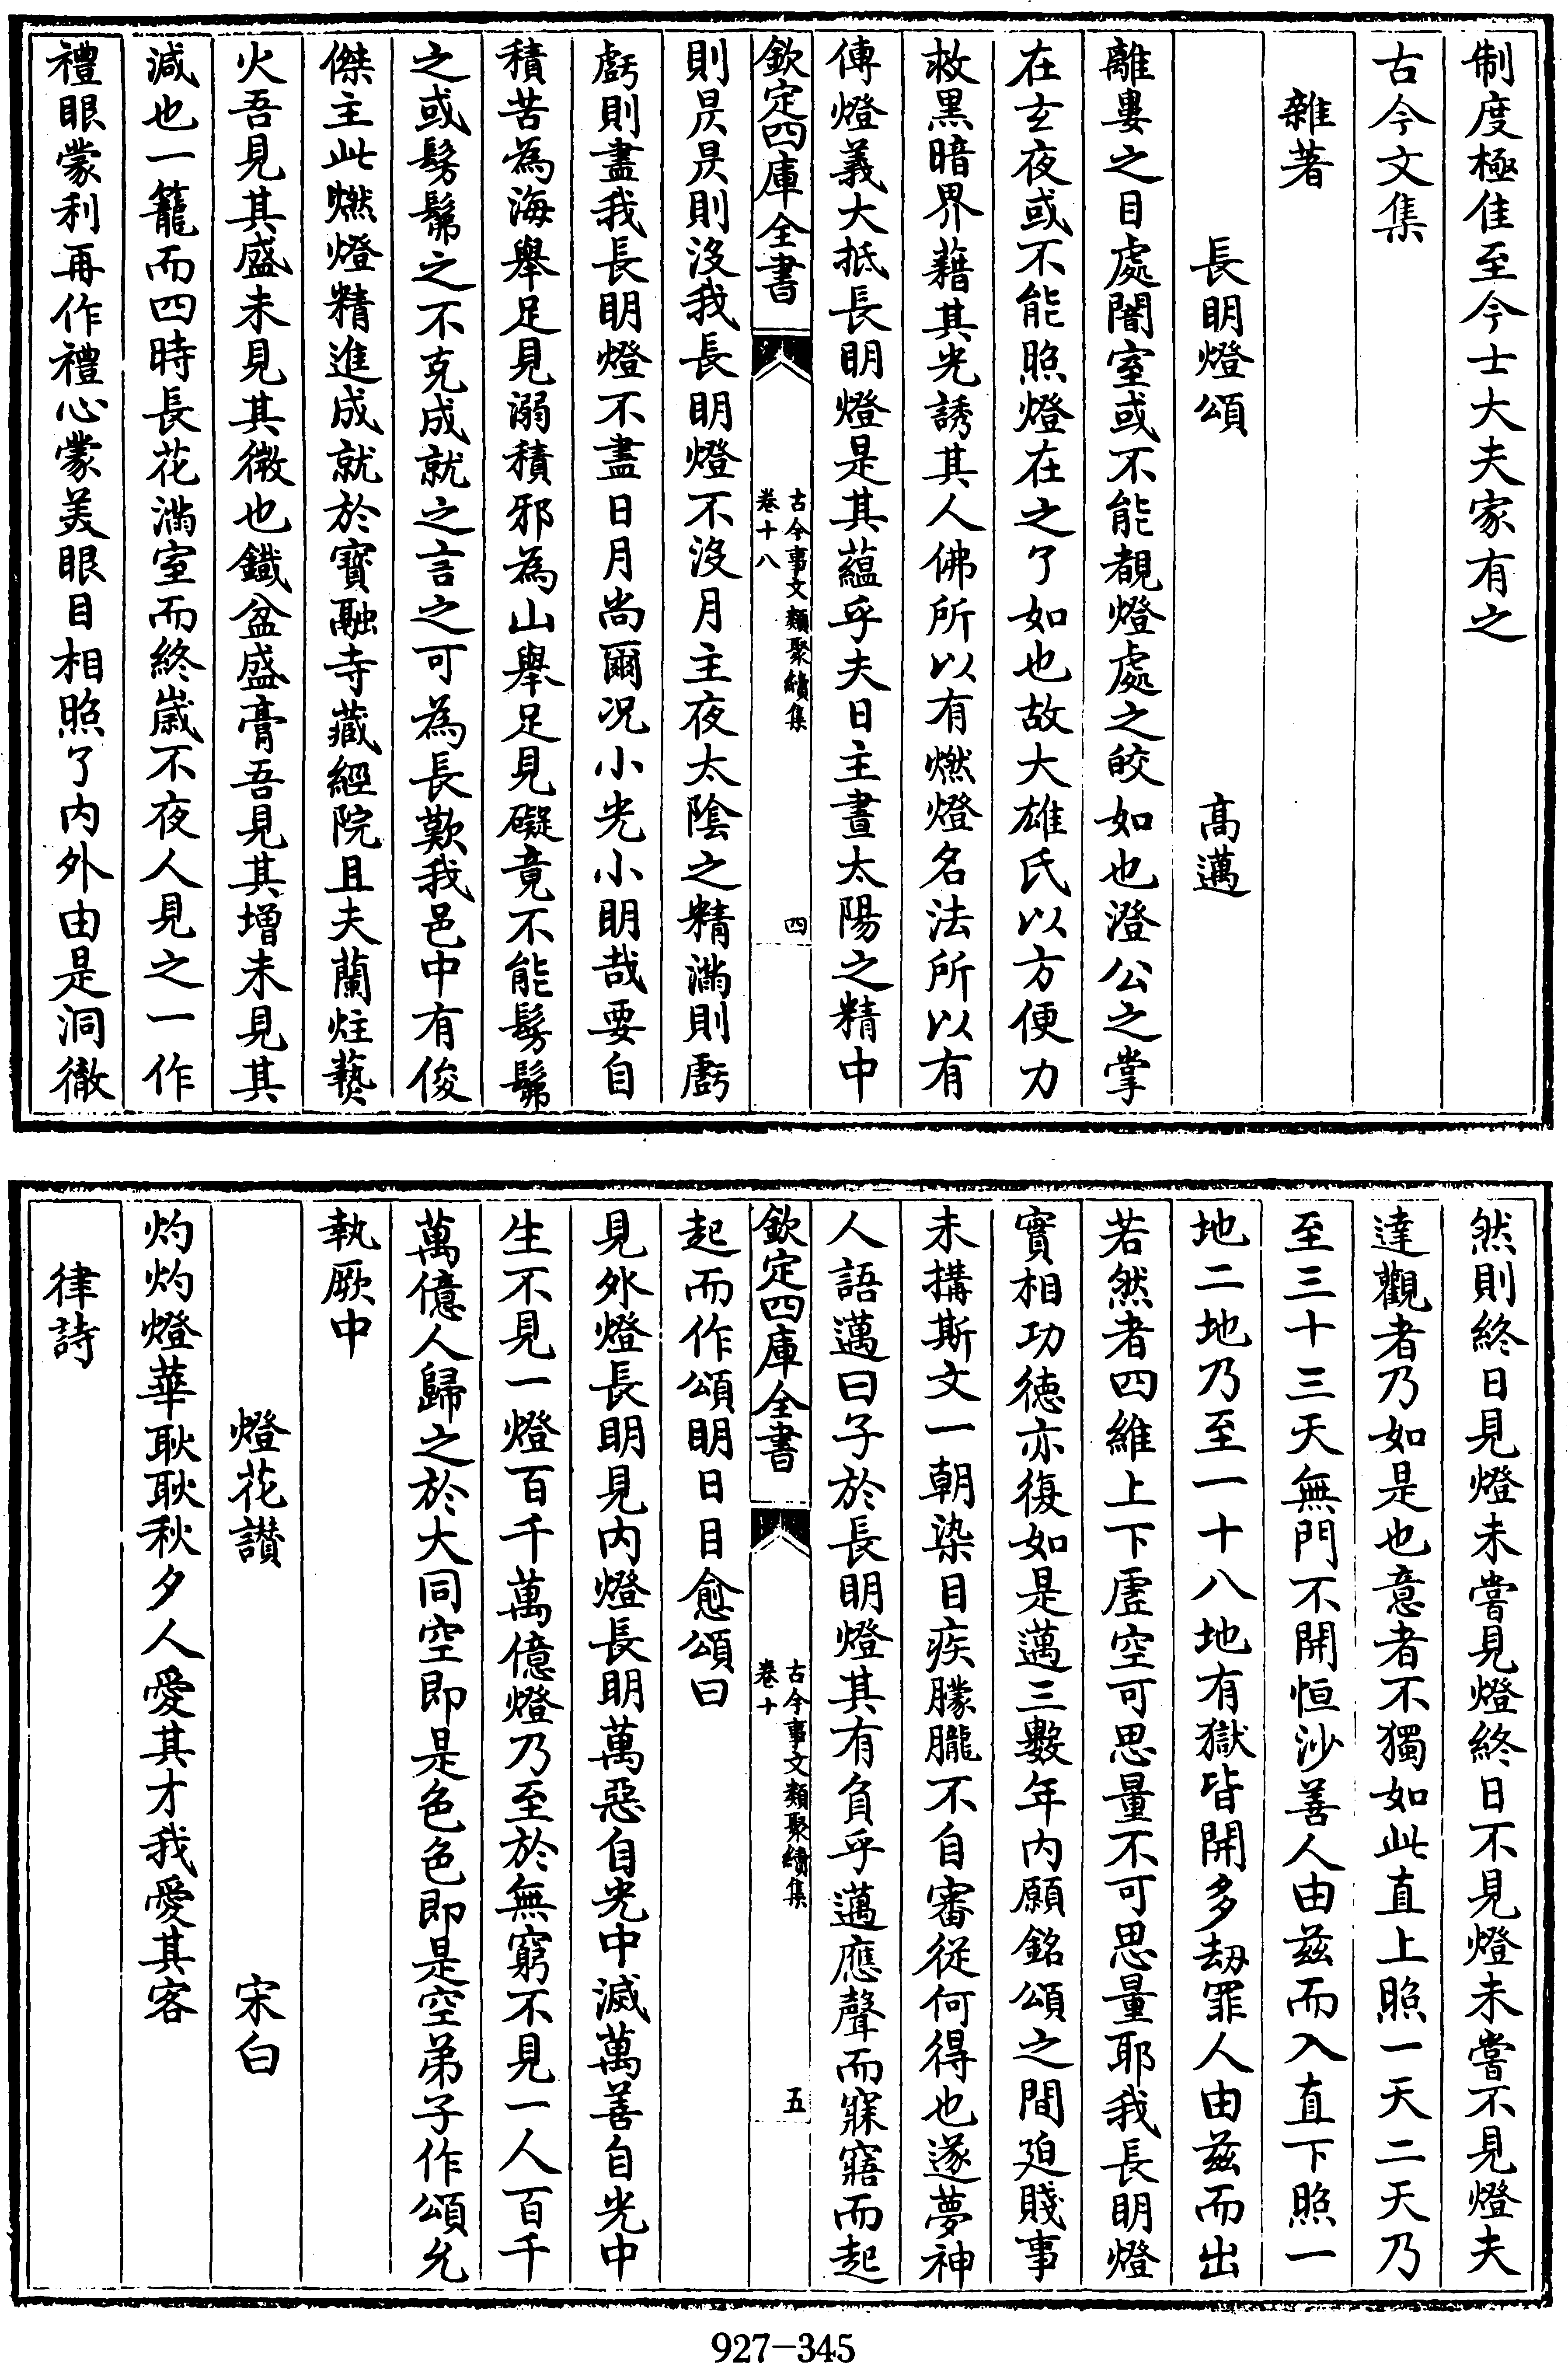 制度極佳至今士大夫家有之
古今文集
雜著
長明燈頌　高邁
離婁之目處闇室或不能覩燈處之皎如也澄公之掌
在玄夜或不能照燈在之了如也故大雄氏以方便力
救黑暗界藉其光誘其人佛所以有燃燈名法所以有
傳燈義大抵長明燈是其蘊乎夫日主晝太陽之精中
欽定四庫全書　古今事文類聚續集　卷十八　四
則昃昃則沒我長明燈不沒月主夜太陰之精滿則虧
虧則盡我長明燈不盡日月尚爾况小光小明哉要自
積苦為海舉足見溺積邪為山舉足見礙竟不能髣髴
之或髣髴之不克成就之言之可為長歎我邑中有俊
傑主此燃燈精進成就於寶融寺藏經院且夫蘭炷爇
火吾見其盛未見其微也鐵盆盛膏吾見其增未見其
減也一籠而四時長花滿室而終歲不夜人見之一作
禮眼蒙利再作禮心蒙美眼目相照了内外由是洞徹
然則終日見燈未嘗見燈終日不見燈未嘗不見燈夫
達觀者乃如是也意者不獨如此直上照一天二天乃
至三十三天無門不開恒沙善人由兹而入直下照一
地二地乃至一十八地有獄皆開多刼罪人由兹而出
若然者四維上下虛空可思量不可思量耶我長明燈
實相功德亦復如是邁三數年内願銘頌之間廹賤事
未搆斯文一朝染目疾朦朧不自審従何得也遂夢神
人語邁曰子於長明燈其有負乎邁應聲而寐寤而起
欽定四庫全書　古今事文類聚續集　卷十　五
起而作頌明日目愈頌曰
見外燈長明見内燈長明萬惡自光中滅萬善自光中
生不見一燈百千萬億燈乃至於無窮不見一人百千
萬億人歸之於大同空即是色色即是空弟子作頌允
執厥中
燈花讃　宋白
灼灼燈華耿耿秋夕人愛其才我愛其客
律詩
927-345